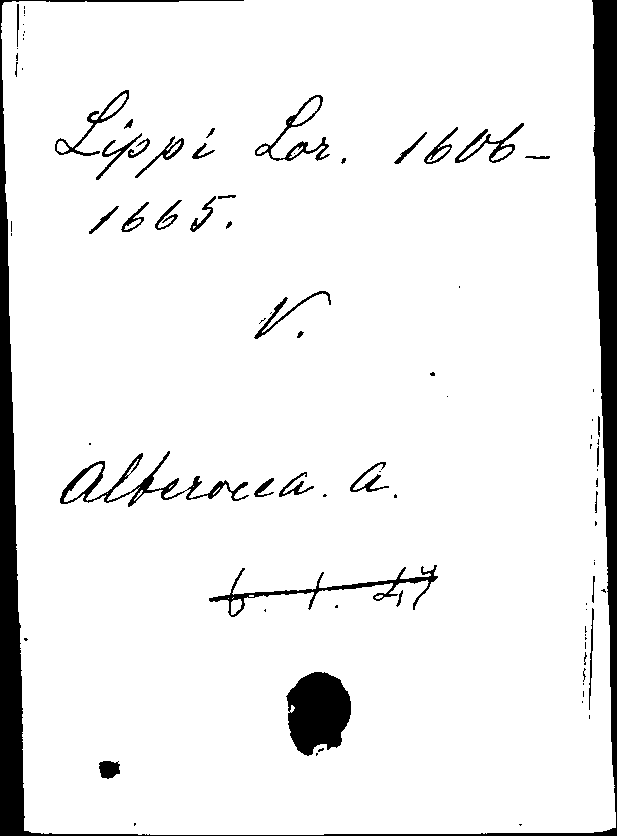 Lippi Lor. 1606-
1665.
V.
Alberocca. A.
6. 1. 47